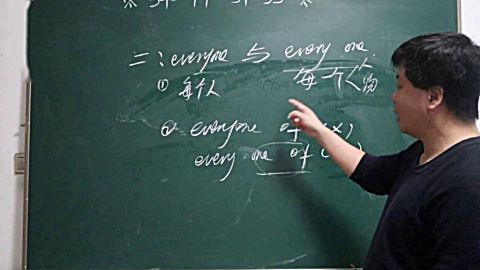 二：everyone 与 every one.
① 每个人 每个人物
② everyone of (×)
every one of (